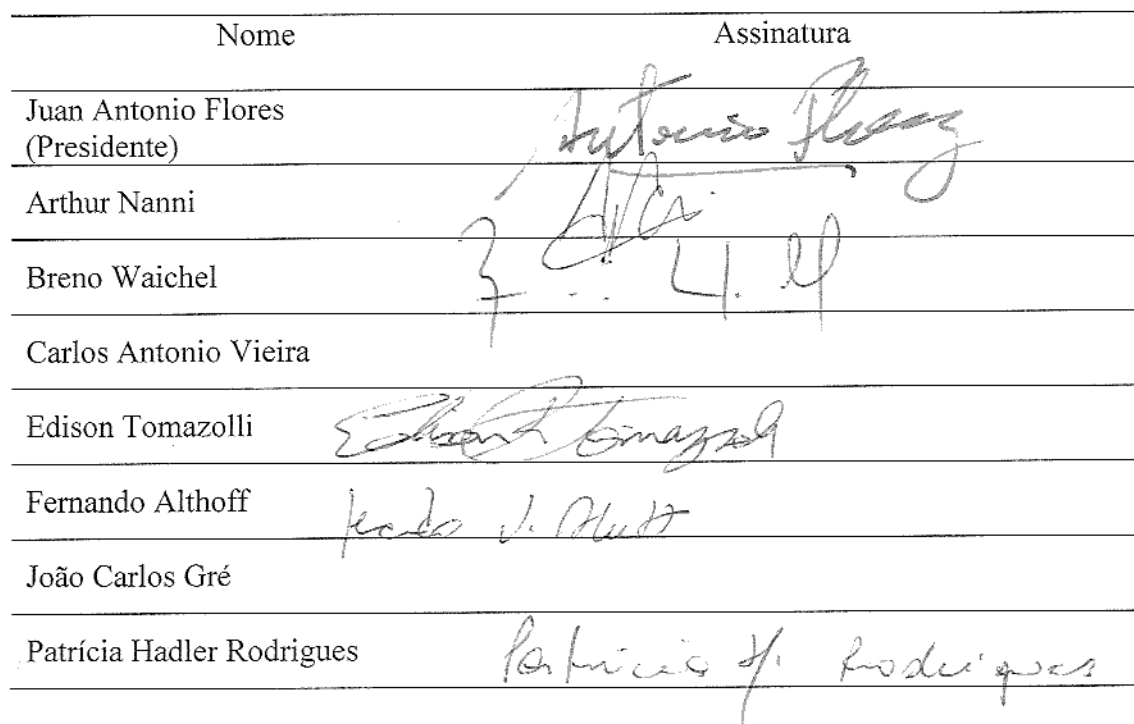 Nome Assinatura
Juan Antonio Flores
(Presidente) Antonio Flores
Arthur Nanni
Breno Waichel
Carlos Antonio Vieira
Edison Tomazolli Edison Tomazzoli
Fernando Althoff
João Carlos Gré
Patrícia Hadler Rodrigues Patricia H. Rodrigues